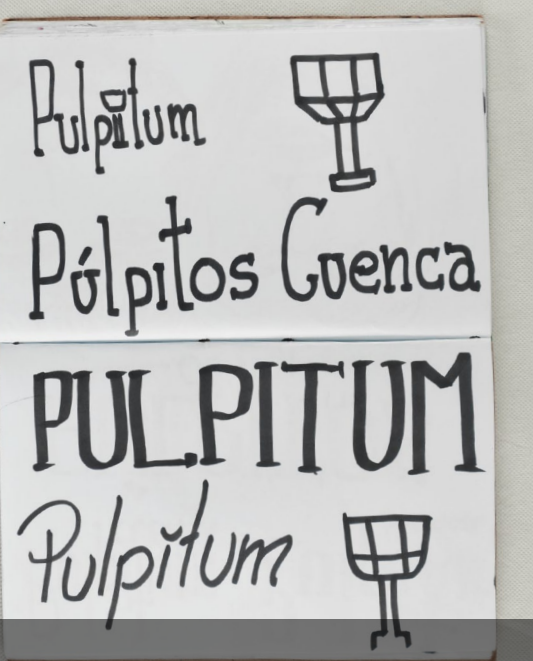 Pulpitum
Púlpitos Cuenca
PULPITUM
Pulpitum